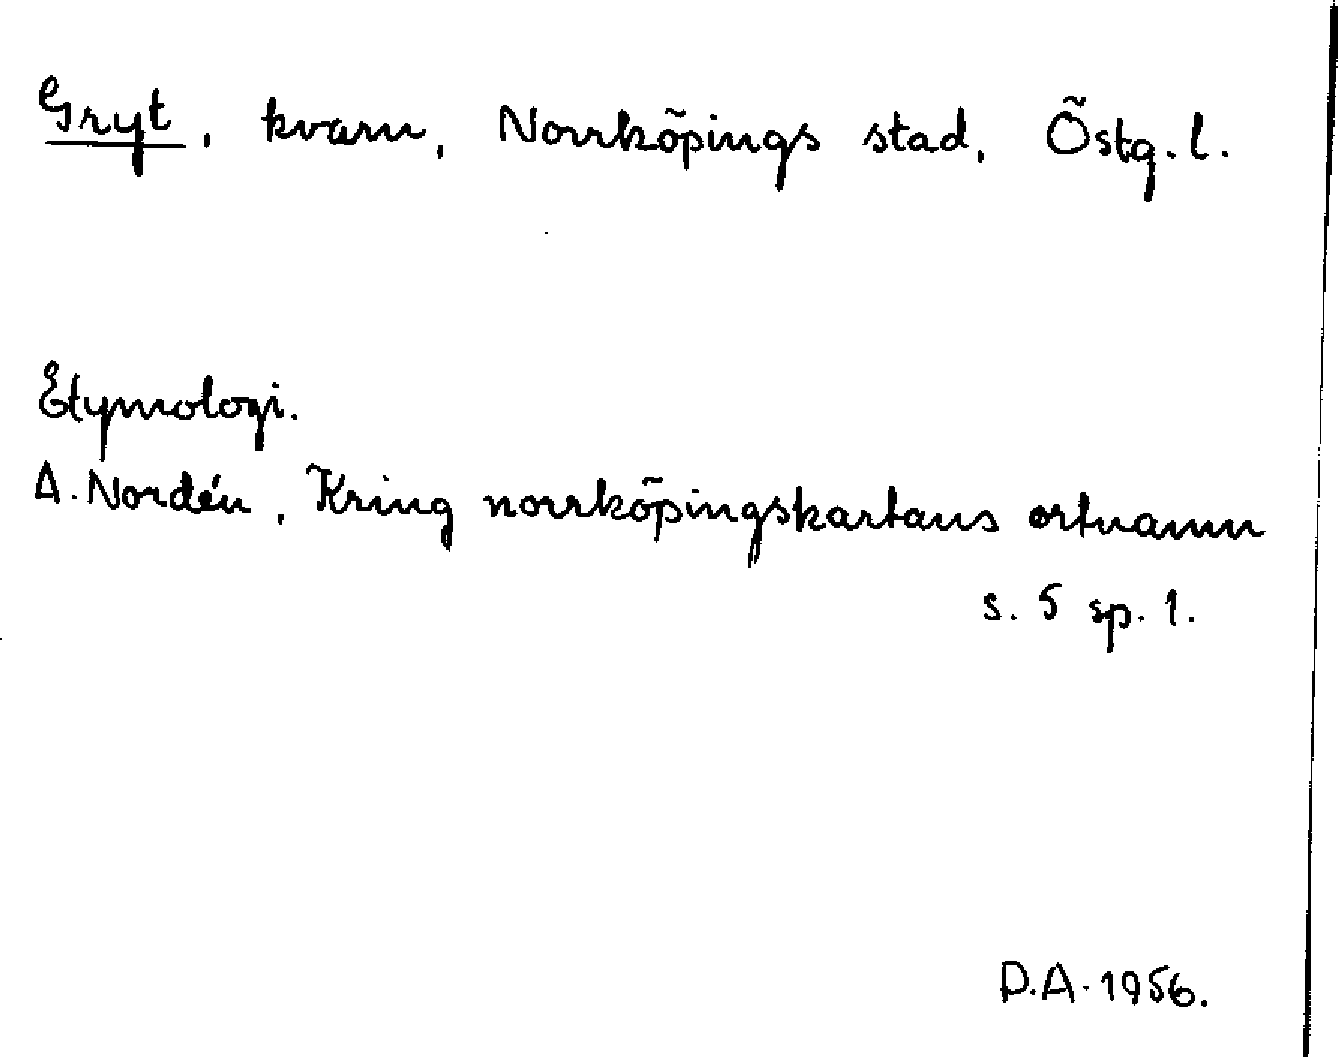 Gryt, kvarn, Norrköpings stad, Östg. l.
Etymologi.
A. Nordén, Kring norrköpingskartans ortnamn
s. 5 sp. 1.
D.A. 1956.